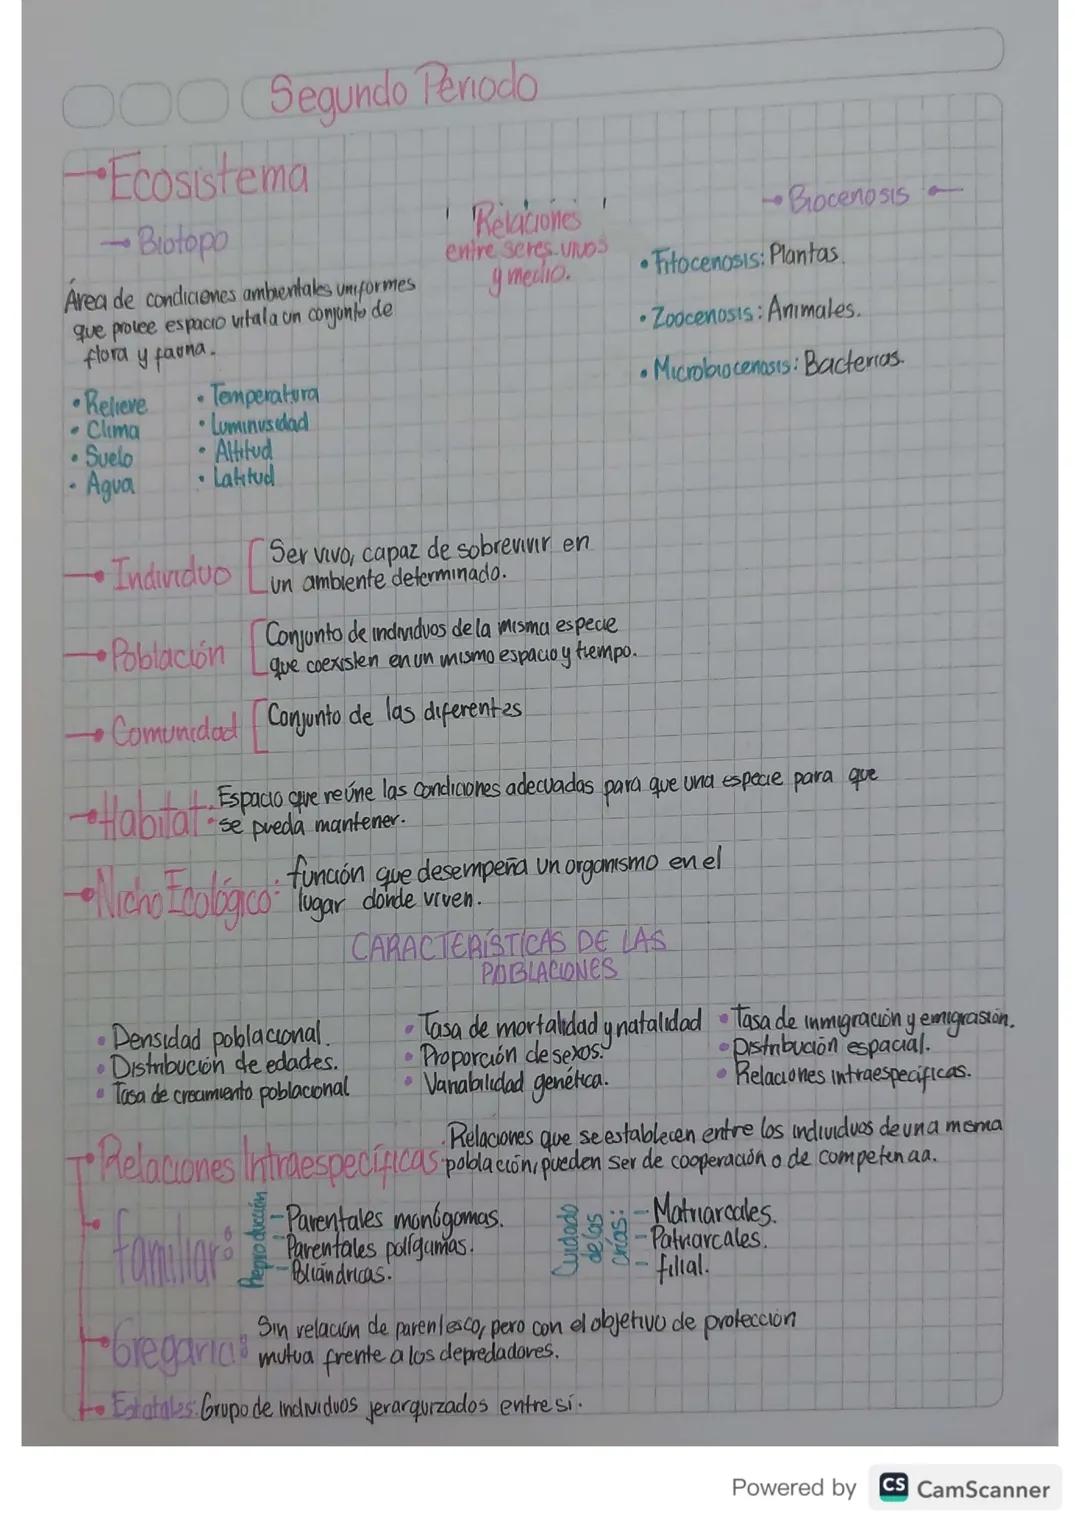 Segundo Periodo
Ecosistema
Biotopo
Área de condiciones ambientales uniformes
que provee espacio vital a un conjunto de
flora y fauna.
• Relieve
• Clima
• Suelo
• Agua
• Temperatura
• Luminusidad
• Altitud
• Latitud
Relaciones
entre seres vivos
y medio.
Biocenosis
• Fitocenosis: Plantas.
• Zoocenosis: Animales.
• Microbiocenosis: Bacterias.
Individuo
Ser vivo, capaz de sobrevivir en
un ambiente determinado.
Población
Conjunto de individuos de la misma especie
que coexisten en un mismo espacio y tiempo.
Comunidad
Conjunto de las diferentes
Habitat:
Espacio que reúne las condiciones adecuadas para que una especie para que
se pueda mantener.
Nicho Ecológico:
función que desempeña un organismo en el
lugar donde viven.
CARACTERÍSTICAS DE LAS
POBLACIONES
• Densidad poblacional.
• Distribución de edades.
• Tasa de crecimiento poblacional
• Tasa de mortalidad y natalidad
• Proporción de sexos.
• Variabilidad genética.
• Tasa de inmigración y emigrasión.
• Distribución espacial.
• Relaciones intraespecificas.
Relaciones Intraespecíficas
Relaciones que se establecen entre los individuos de una misma
población, pueden ser de cooperación o de competencia.
familiar:
Reproducción
- Parentales monógamas.
- Parentales polígamas.
- Poliándricas.
Cuidado
de las
crías:
- Matriarcales.
- Patriarcales.
- filial.
Gregaria:
Sin relación de parentesco, pero con el objetivo de protección
mutua frente a los depredadores.
Estatales: Grupo de individuos jerarquizados entre sí.
Powered by CS CamScanner